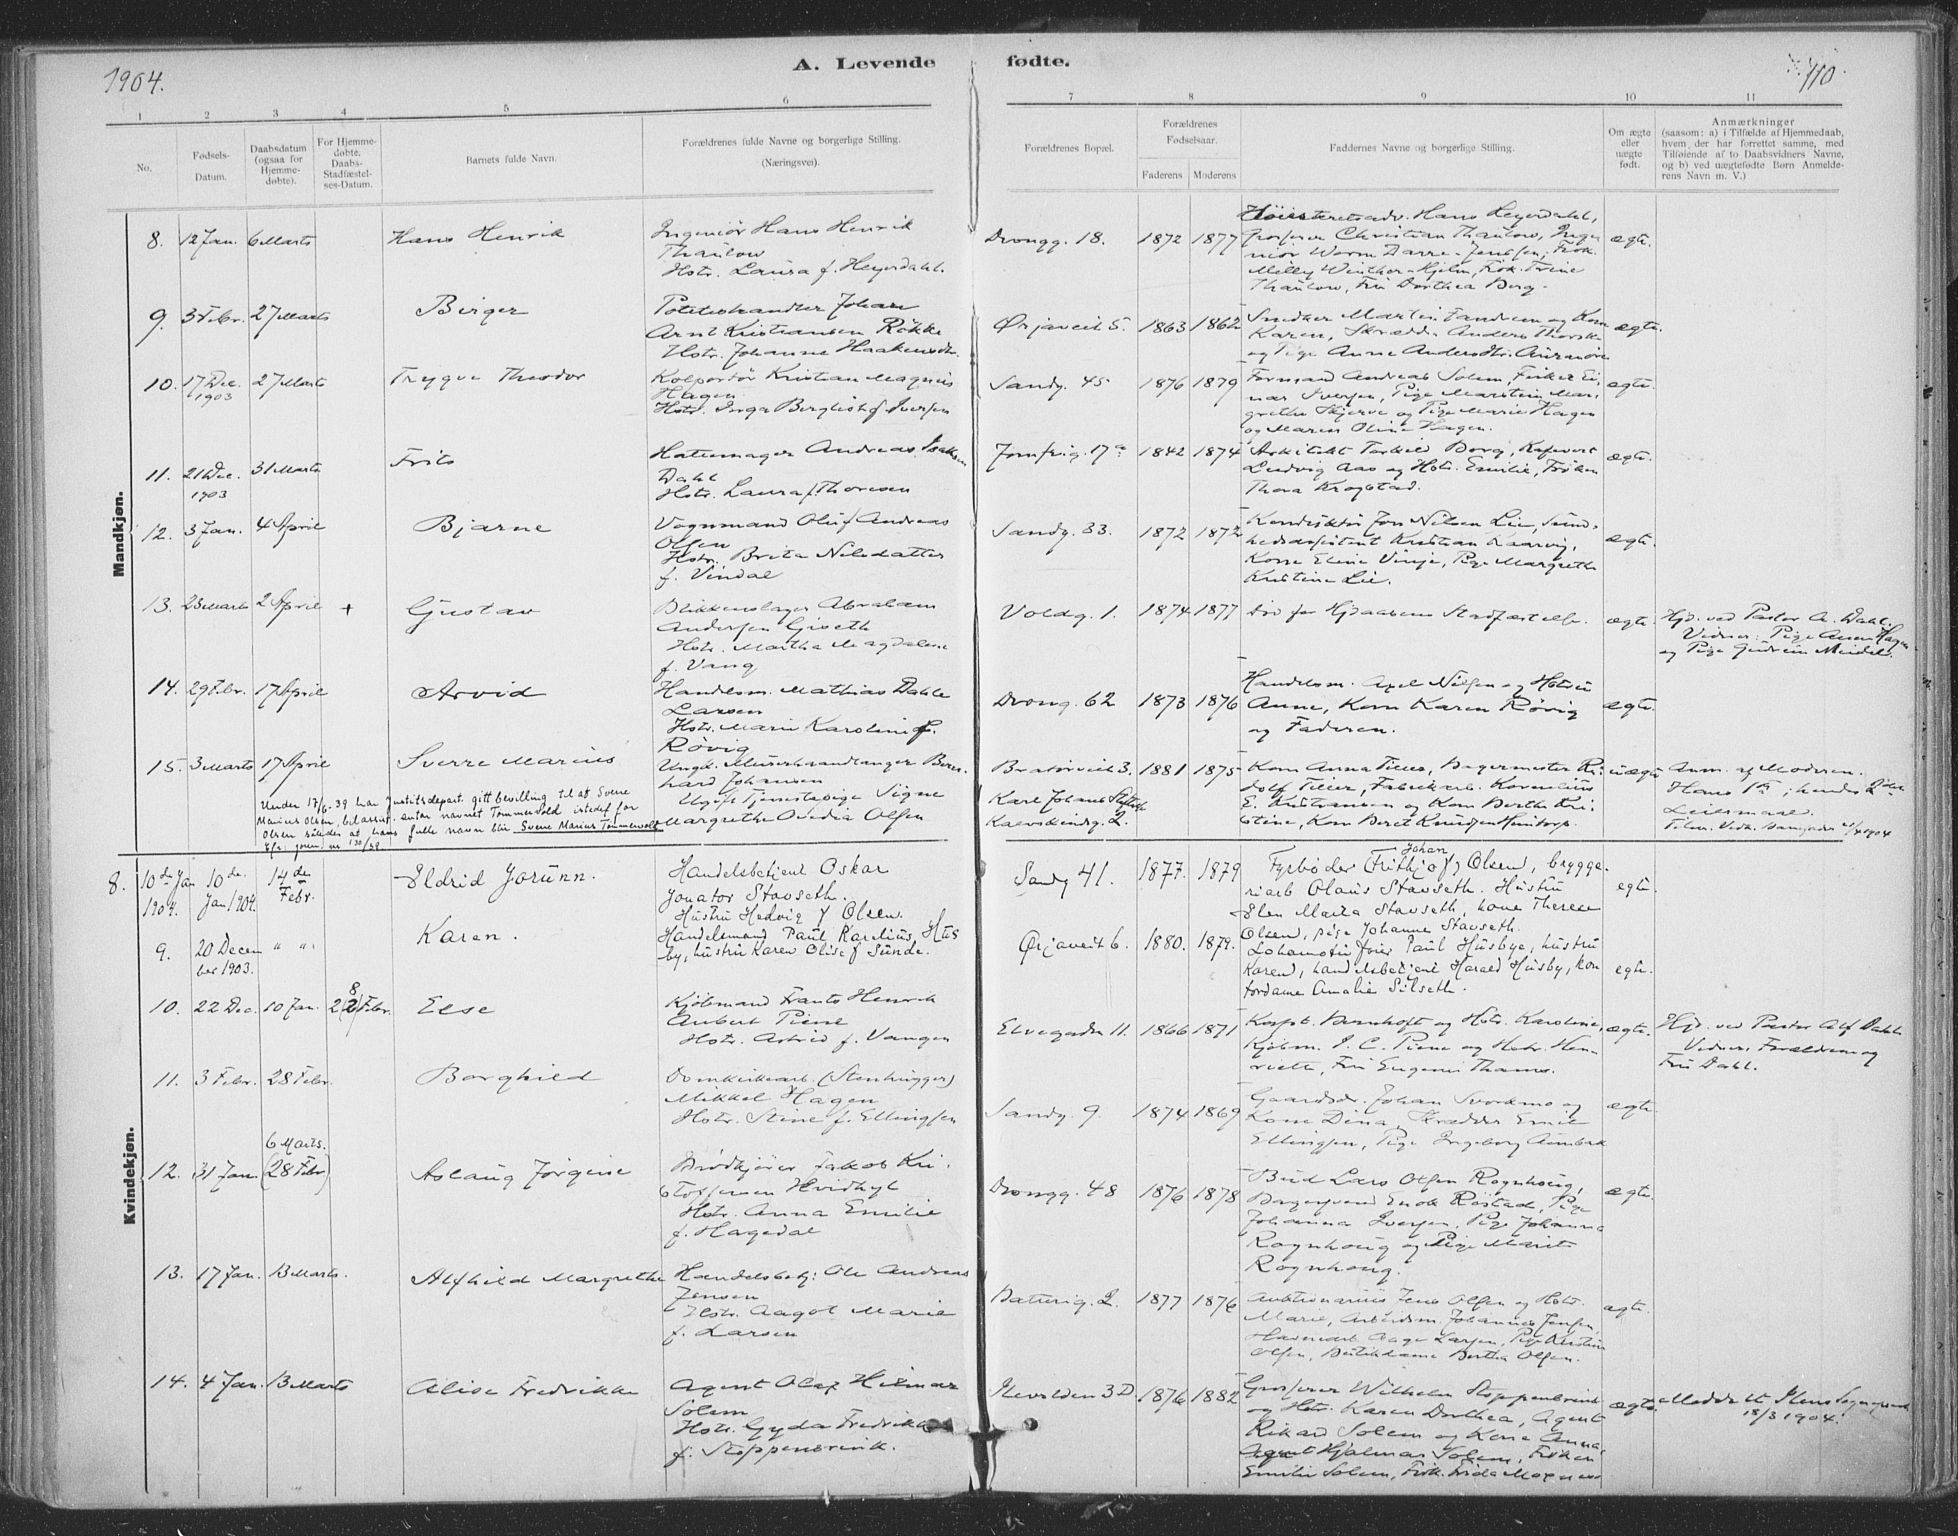 1904.
A. Levende fødte.
110.
1 2 3 4 5 6 7 8 9 10 11
No.
Fødsels-
Datum.
Daabsdatum
(ogsaa for
Hjemme-
døbte).
For Hjemme-
døbte.
Daabs-
Stadfæstel-
ses-Datum.
Barnets fulde Navn.
Forældrenes fulde Navne og borgerlige Stilling.
(Næringsvei).
Forældrenes Bopæl.
Forældrenes
Fødselsaar.
Faderens
Moderens
Faddernes Navne og borgerlige Stilling.
Om ægte
eller
uægte
født.
Anmærkninger
(saasom: a) i Tilfælde af Hjemmedaab,
hvem der har forrettet samme, med
Tilføiende af to Daabsvidners Navne,
og b) ved uægtefødte Børn Anmelde-
rens Navn m. V.)
Mandkjøn.
8. 12 Jan. 6 Marts Hans Henrik
Ingeniør Hans Henrik
Thaulow
Hstr. Laura f. Heyerdahl.
Drongg. 18. 1872 1877
Høiesteretsadv. Hans Heyerdahl,
Grosserer Christian Thaulow, Inge
niør Worm Darre-Jenssen, Frøk.
Milly Winther-Hjelm, Frøk. Trine
Thaulow, Fru Dorthea Berg.
ægte.
9. 3 Febr. 27 Marts Birger
Poteteshandler Johan
Arnt Kristiansen Røkke
Hstr. Johanne Haakensdtr.
Ørjaveit 5. 1863 1862
Snedker Martin Tandrem og Kone
Karen, Skrædder Anders Thorske
og Pige Anne
ægte.
10. 17 Dec. 1903 27 Marts Trygve Theodor
Kolportør Kristian Magnus
Hagen
Hstr. Inga Bergliot f. Iversen
Sandg. 45 1876 1879
Formand Andreas Solem, Fisker Ei
nar Iversen, Pige Marstein Mar
grethe Skjerve og Pige Marie Hagen
og Maren Oline Hagen.
ægte.
11. 21 Dec. 1903 31 Marts Frits
Hattemager Andreas Isaksen
Dahl
Hstr. Laura f. Thoresen
Jomfrug. 17a 1842 1874
Arkitekt Torkild Borg, Kasserer
Ludvig Aas og Hstr. Emilie, Frøken
Thora Krogstad.
ægte.
12. 3 Jan. 4 April Bjarne
Vognmand Oluf Andreas
Olsen
Hstr. Brita Nilsdatter
f. Vindal
Sandg. 33. 1872 1872
Konduktør Jon Nilsen Lie, Sund-
hedsassistent Kristian Kaarvig,
Kone Eline Vinje, Pige Margrethe
Kristine Lie.
ægte.
13. 23 Marts 2 April + Gustav
Blikkenslager Abraham
Andersen Giseth
Hstr. Martha Magdalene
f. Vang
Voldg. 1. 1874 1877
Død før Hjdaabens Stadfæstelse.
ægte.
Hjd. ved Pastor A. Dahl.
Vidner: Pige Anna Hagen
og Pige Gudrun
14. 29 Febr. 17 April Arvid
Handelsm. Mathias Dahle
Larsen
Hstr. Marie Karoline f.
Røvig
Drong. 62 1873 1876
Handelsm. Axel Nilsen og Hstru
Anne, Kone Karen Røvig
og Faderen.
ægte.
15. 3 Marts 17 April Sverre Marius
Ungk. Murerhaandlanger Bern
hard Johansen
Ugift Tjenestepige Signe
Margrethe Ovedia Olsen
Bratørveit 3. 1881 1875
Karl Johans
Kalvskindsg. 2.
Kone Anna Tiller, Bagermester Ru
dolf Tiller, Fabrikarb. Kornelius
E. Kristiansen og Kone Berthe Kri
stine, Kone Beret Knudsen
uægte
Anm. af Moderen.
Hans 1ste, hendes 2den
Leiermaal.
Under 17/6-39 har Justitsdepart. gitt bevilling til at Sverre
Marius Olsen, bl. a. antar navnet Tømmervold istedet for
Olsen således at hans fulle navn blir Sverre Marius Tømmervold
Kfr. journ. nr 130/39
Kvindekjøn.
8. 10de Jan 1904. 10de Jan 1904. 14de Febr. Eldrid Jorunn.
Handelsbetjent Oskar
Jonator Stavseth.
Hustru Hedvig f Olsen.
Sandg 41. 1877. 1879
Johan
Fyrbøder (Frithjof) Olsen, brygge-
riarb Olaus Stavseth. Hustru
Elen Marta Stavseth, kone Therese
Olsen, pige Johanne Stavseth.
egte.
9. 20 Decem
ber 1903. " " Karen.
Handelsmand Paul Kornelius Hus
by, hustru Karen Olise f Sunde.
Ørjaveit 6. 1880. 1879.
Lokomotivfører Paul Husbye, hustru
Karen, handelsbetjent Harald Husby, kon
tordame Amalie Silseth.
egte.
10. 22 Dec. 10 Jan. 28 Febr. Else
Kjøbmand Frants Henrik
Aubert Piene
Hstr. Astrid f. Vangen
Elvegaden 11. 1866 1871
Kaspt. Bernhoft og Hstr. Karoline,
Kjøbm. I. C. Piene og Hstr. Hen-
riette, Fru Eugenie Thams.
ægte.
Hjd. ved Pastor Alf Dahl.
Vidner: Forældrene og
Fru Dahl.
11. 3 Febr. 28 Febr. Borghild
Domkirkearb. (Stenhugger)
Mikkel Hagen
Hstr. Stine f. Ellingsen
Sandg. 9. 1874 1869
Gaardbr. Johan Svorkmo og
Kone Dina, Skrædder Emil
Ellingsen, Pige Ingeborg
ægte.
12. 31 Jan. 6 Marts. (28 Febr) Aslaug Jørgine
Brødkjører Jakob Kri-
stoffersen Hvidkyl
Hstr. Anna Emilie
f. Hagedal
Drongg. 48 1876 1878
Bud Lars Olsen Rognhoug,
Bagersvend Enok Røstad, Pige
Johanna Iversen, Pige Johanna
Rognhoug og Pige Marit
Rognhoug.
ægte.
13. 17 Jan. 13 Marts. Alfhild Margrethe
Handelsbetj: Ole Andreas
Jensen
Hstr. Aagot Marie
f. Larsen
Batterig. 2. 1877 1876
Auktionarius Jens Olsen og Hstr.
Marie, Arbeidsm. Johannes Jensen,
Havnearb. Aage Larsen, Pige Kristine
Olsen, Butikdame Berthe Olsen.
ægte.
14. 4 Jan. 13 Marts Alise Fredrikke
Agent Olaf Hilmar
Solem
Hstr. Gyda Fredrikke
f. Stoppenbrink.
Ilevolden 3D. 1876 1882
Grosserer Wilhelm Stoppenbrink
og Hstr. Karen Dorthea, Agent
Rikard Solem og Kone Anna,
Agent Hjalmar Solem, Frøken
Emilie Solem, Frøk. Frida
ægte.
Meddelt Ilens Sogneprest
18/3 1904.